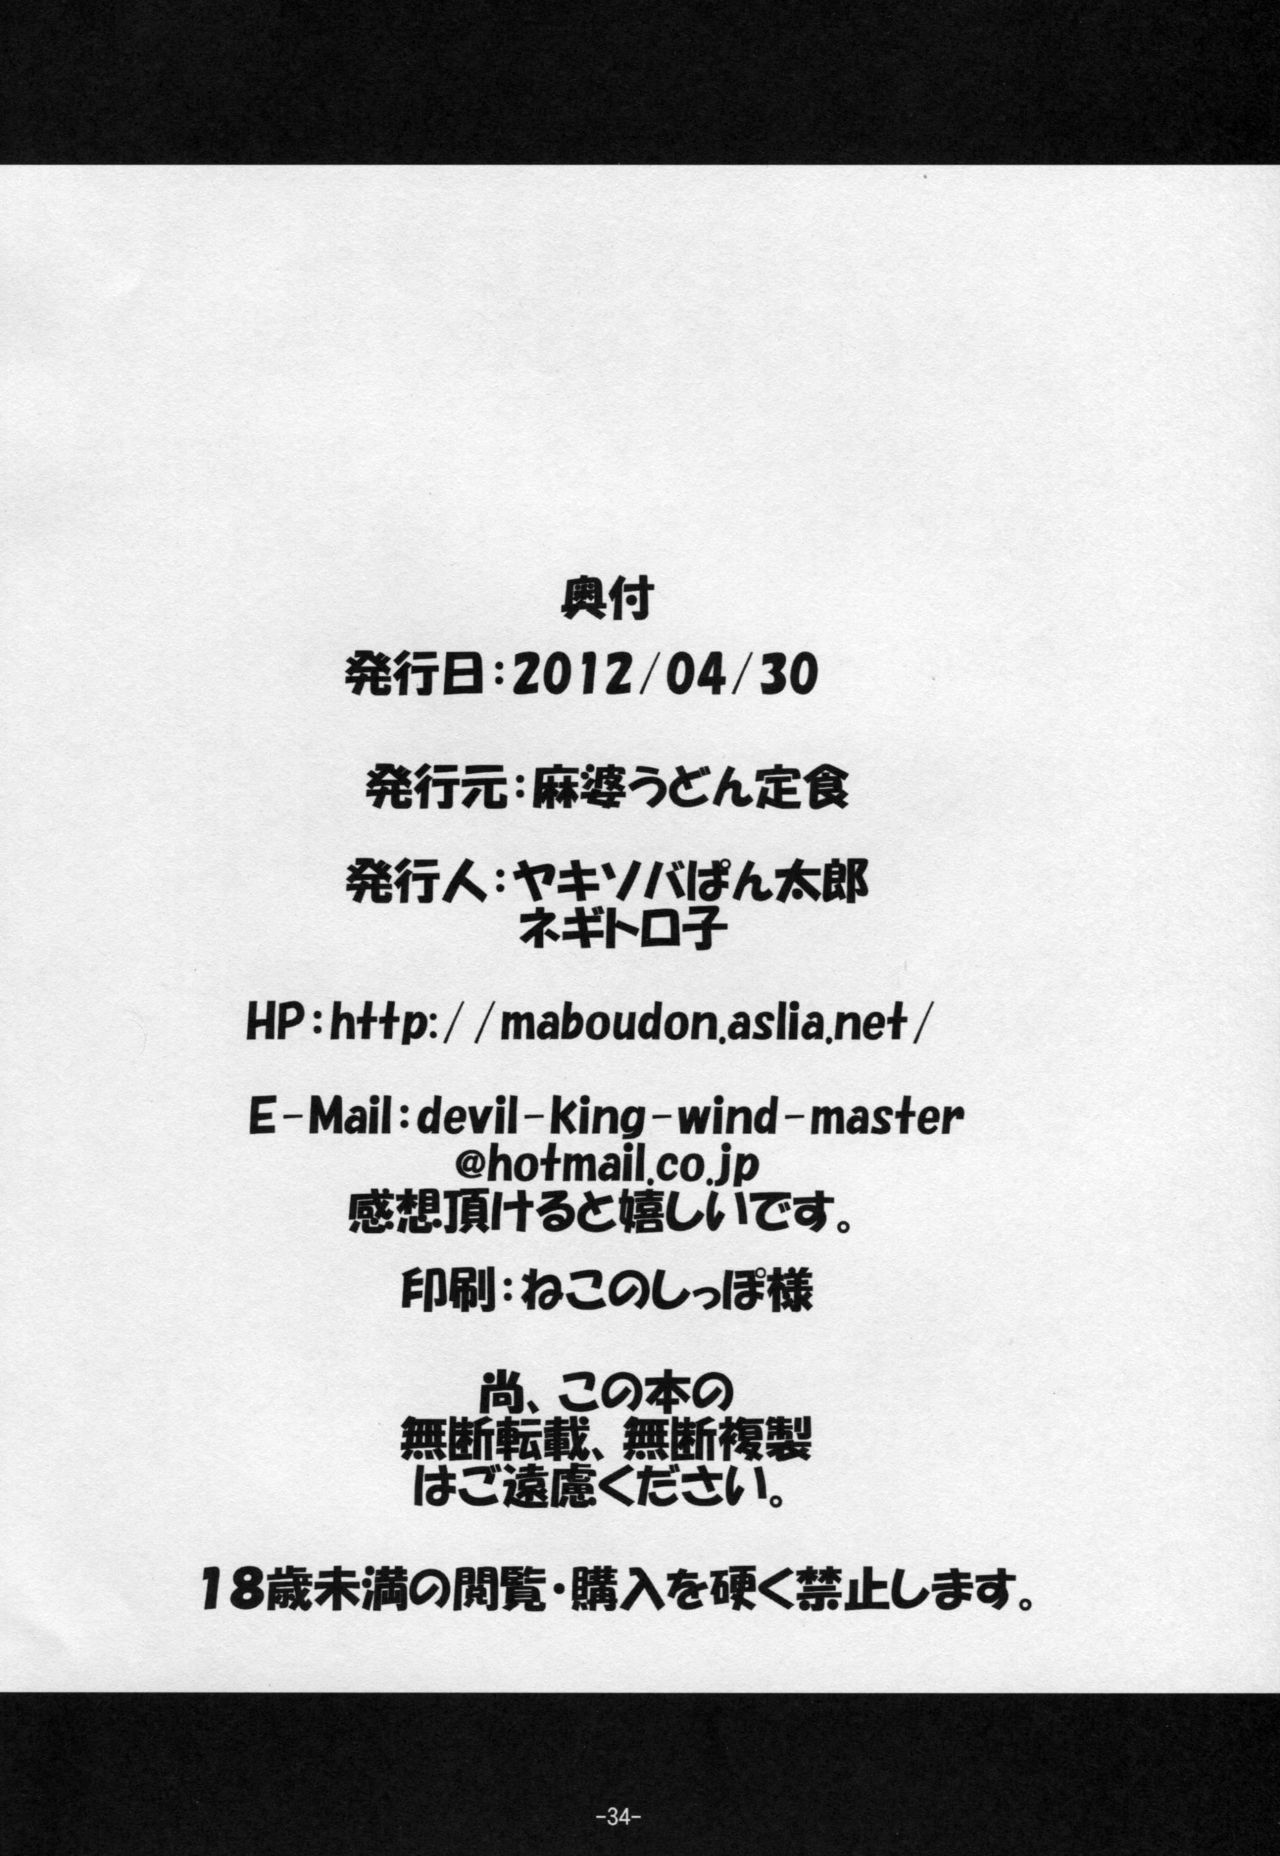 奥付
発行日:2012/04/30
発行元:麻婆うどん定食
発行人:ヤキソバぱん太郎
ネギトロ子
HP:http://maboudon.aslia.net/
E-Mail:devil-king-wind-master
@hotmail.co.jp
感想頂けると嬉しいです。
印刷:ねこのしっぽ様
尚、この本の
無断転載、無断複製
はご遠慮ください。
18歳未満の閲覧・購入を硬く禁止します。
-34-